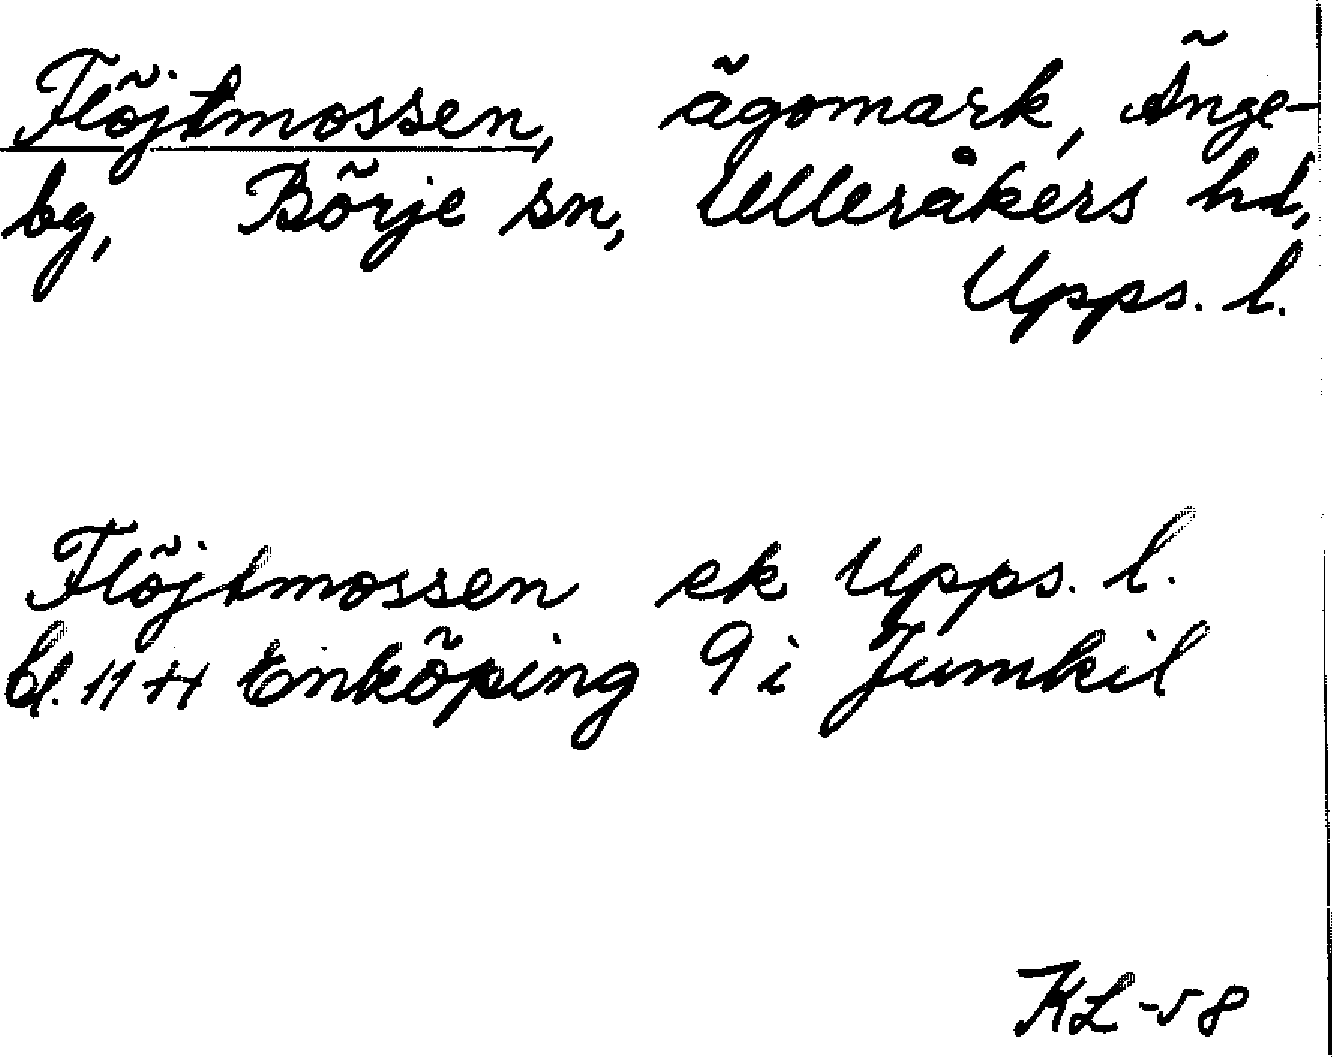 Flöjtmossen, ägomark, Änge-
by, Börje sn, Ulleråkers hd,
Upps. l.
Flöjtmossen ek Upps. l.
bl. 11 + Enköping 9 i Jumkil
KL -58